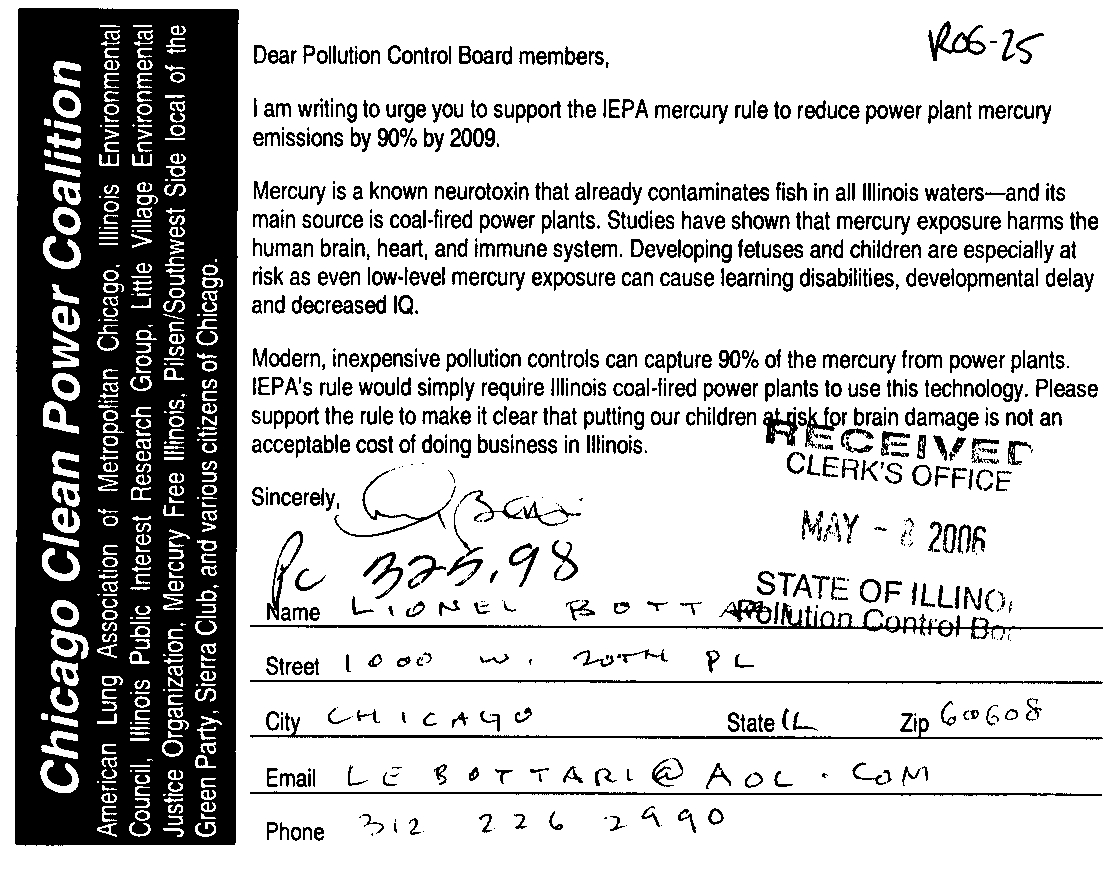 Chicago Clean Power Coalition
American Lung Association of Metropolitan Chicago, Illinois Environmental
Council, Illinois Public Interest Research Group, Little Village Environmental
Justice Organization, Mercury Free Illinois, Pilsen/Southwest Side local of the
Green Party, Sierra Club, and various citizens of Chicago.
R06-25
Dear Pollution Control Board members,
I am writing to urge you to support the IEPA mercury rule to reduce power plant mercury
emissions by 90% by 2009.
Mercury is a known neurotoxin that already contaminates fish in all Illinois waters—and its
main source is coal-fired power plants. Studies have shown that mercury exposure harms the
human brain, heart, and immune system. Developing fetuses and children are especially at
risk as even low-level mercury exposure can cause learning disabilities, developmental delay
and decreased IQ.
Modern, inexpensive pollution controls can capture 90% of the mercury from power plants.
IEPA's rule would simply require Illinois coal-fired power plants to use this technology. Please
support the rule to make it clear that putting our children at risk for brain damage is not an
acceptable cost of doing business in Illinois.
RECEIVED
CLERK'S OFFICE
MAY - 8 2006
STATE OF ILLINO
Pollution Control Bo
Sincerely,
PC 325.98
Name LIONEL BOTTARI
Street 1000 W. 20TH PL
City CHICAGO State IL Zip 60608
Email LEBOTTARI@AOL.COM
Phone 312 226 2990